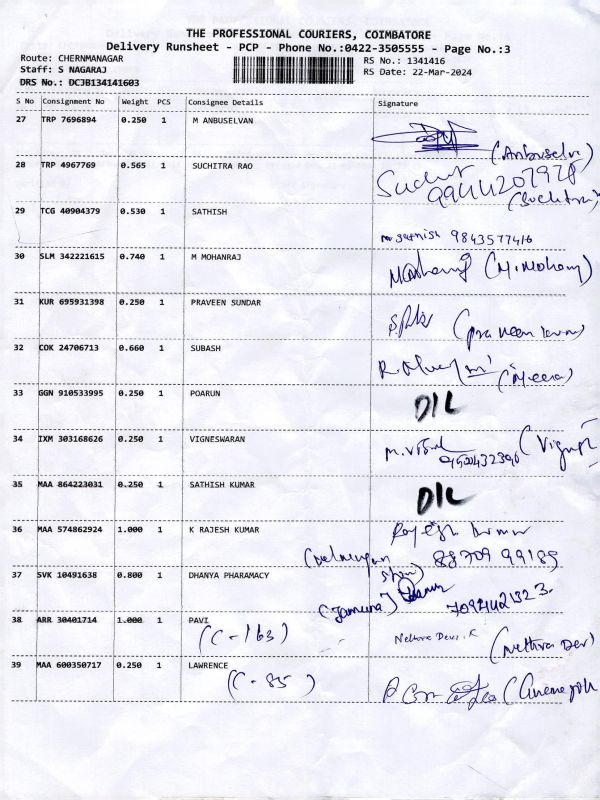 THE PROFESSIONAL COURIERS, COIMBATORE
Delivery Runsheet - PCP - Phone No.:0422-3505555 - Page No.:3
Route: CHERNMANAGAR
Staff: S NAGARAJ
DRS No.: DCJB134141603
RS No.: 1341416
RS Date: 22-Mar-2024
S No Consignment No Weight PCS Consignee Details Signature
27 TRP 7696894 0.250 1 M ANBUSELVAN
(Anbuselvi)
28 TRP 4967769 0.565 1 SUCHITRA RAO
9944207978
(Suchitra)
29 TCG 40904379 0.530 1 SATHISH
m. sathish 9843577416
30 SLM 342221615 0.740 1 M MOHANRAJ
31 KUR 695931398 0.250 1 PRAVEEN SUNDAR
32 COK 24706713 0.660 1 SUBASH
(Meera)
33 GGN 910533995 0.250 1 POARUN
D/L
34 IXM 303168626 0.250 1 VIGNESWARAN
35 MAA 864223031 0.250 1 SATHISH KUMAR
D/L
36 MAA 574862924 1.000 1 K RAJESH KUMAR
Rajesh kumar
88709 99189
37 SVK 10491638 0.800 1 DHANYA PHARAMACY
(Jamuna)
38 ARR 30401714 1.000 1 PAVI
(C-163)
Nethra Devi. K
(Nethra Devi)
39 MAA 600350717 0.250 1 LAWRENCE
(C-85)